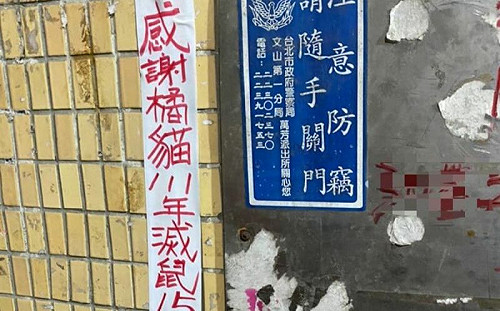 感謝橘貓111年滅鼠15
注意防竊
請隨手關門
台北市政府警察局
文山第一分局
萬芳派出所關心您
電話：二二三〇二三七〇
二二三九一七五三